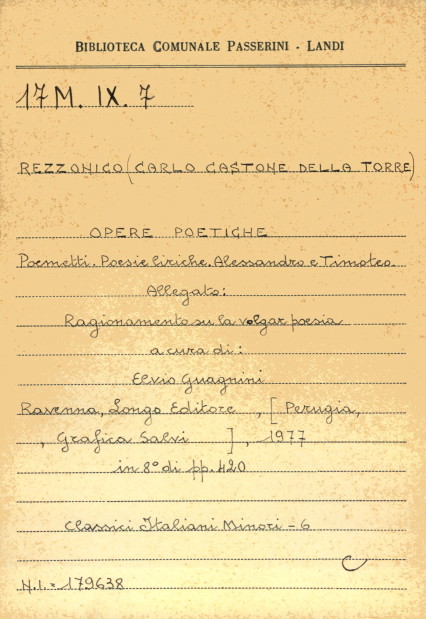 BIBLIOTECA COMUNALE PASSERINI - LANDI
17 M. IX. 7
REZZONICO (CARLO CASTONE DELLA TORRE)
OPERE POETICHE
Poemetti. Poesie liriche. Alessandro e Timoteo.
Allegato:
Ragionamento su la volgar poesia
a cura di:
Elvio Guagnini
Ravenna, Longo Editore , [ Perugia,
, Grafica Salvi ] , 1977
in 8° di pp. 420
Classici Italiani Minori - 6
C
N.I. = 179638